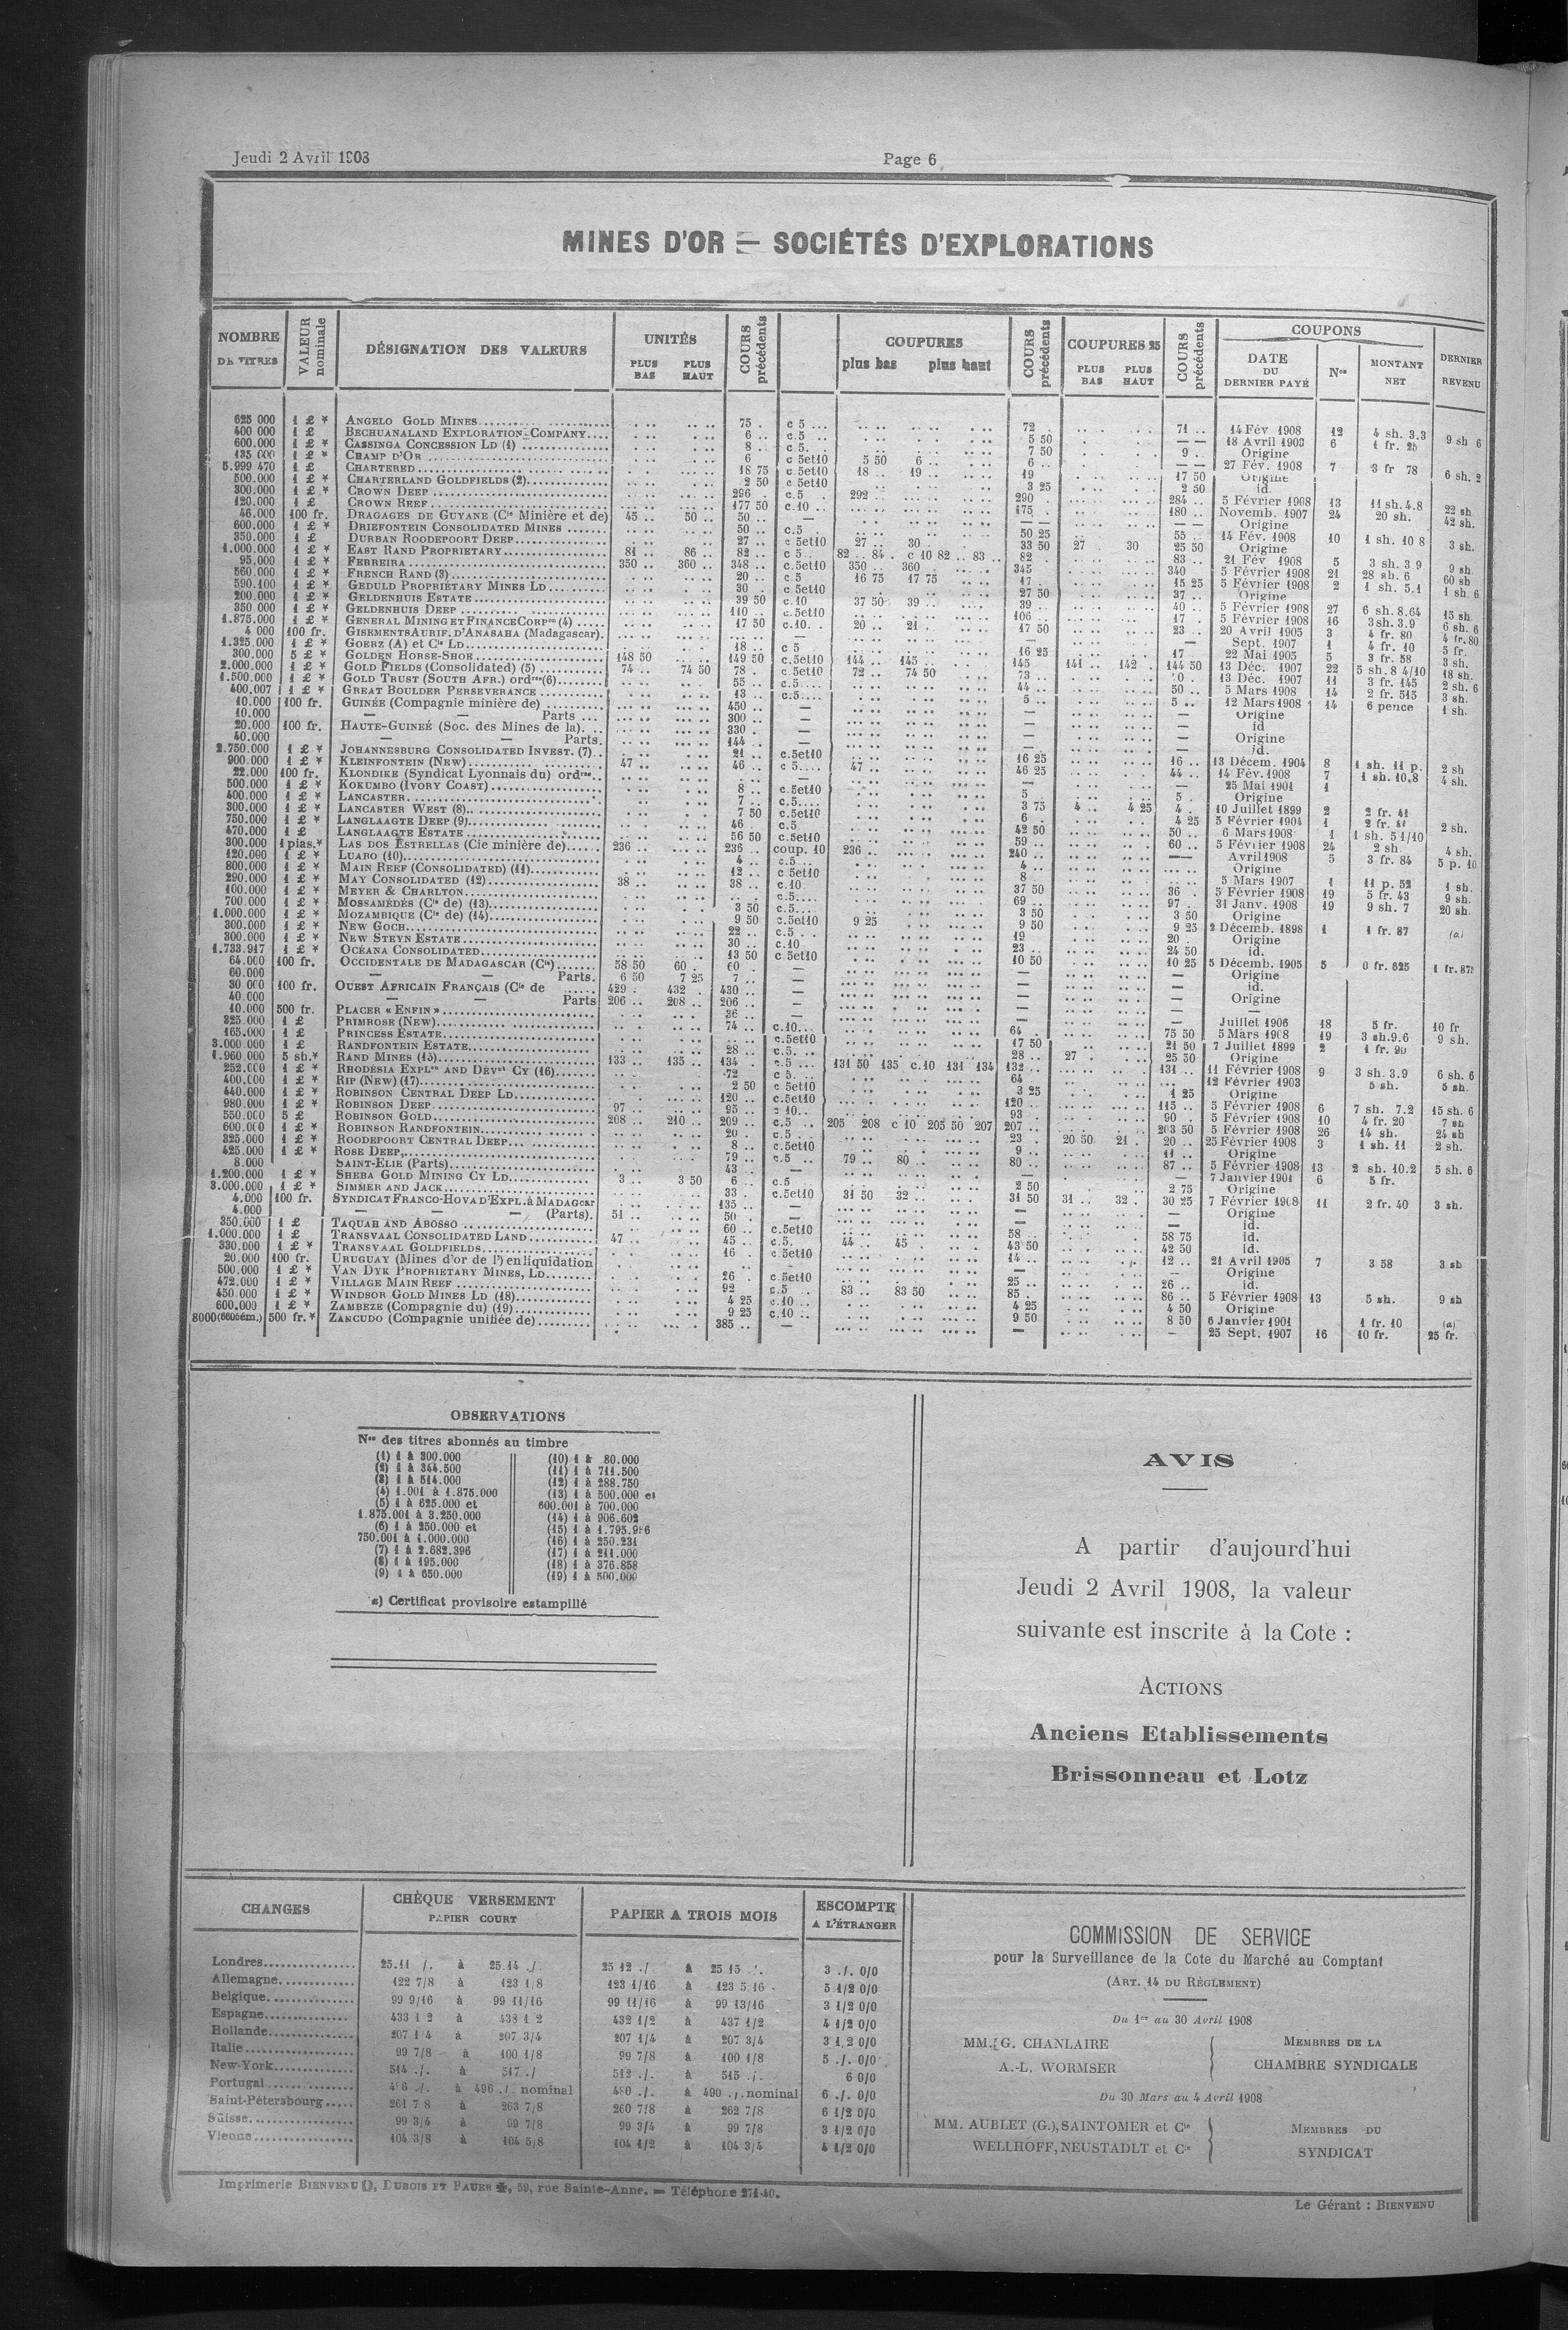 Jeudi 2 Avril 1908
Page 6
MINES D'OR — SOCIÉTÉS D'EXPLORATIONS
NOMBRE DE TITRES
VALEUR nominale
DÉSIGNATION DES VALEURS
UNITÉS
PLUS BAS PLUS HAUT
COURS précédents
COUPURES
plus bas plus haut
COURS précédents
COUPURES 25
PLUS BAS PLUS HAUT
COURS précédents
COUPONS
DATE DU DERNIER PAYÉ
Nos
MONTANT NET
DERNIER REVENU
625.000 1 £ * ANGELO GOLD MINES 75 . c 5 ... 72 . 71 .. 14 Fév 1908 12 4 sh. 3.3 9 sh 6
400 000 1 £ BECHUANALAND EXPLORATION COMPANY 6 .. c.5 .. 5 50 — — 18 Avril 1903 6 1 fr. 25
600.000 1 £ * CASSINGA CONCESSION LD (1) 8 .. c 5. 7 50 9 .. Origine
135 000 1 £ * CHAMP D'OR 6 c 5et10 5 50 6 .. 6 .. — — 27 Fév. 1908 7 3 fr 78 6 sh. 2
5.999 470 1 £ CHARTERED 18 75 c.5et10 18 .. 19 .. 19 17 50 Origine
500.000 1 £ * CHARTERLAND GOLDFIELDS (2) 2 50 c 5et10 3 25 2 50 id.
300.000 1 £ * CROWN DEEP 296 . c.5 . 292 .. 290 . 284 .. 5 Février 1908 13 11 sh. 4.8 22 sh
120.000 1 £ CROWN REEF 177 50 c.10 .. 175 . 180 .. Novemb. 1907 24 20 sh. 42 sh.
46.000 100 fr. DRAGAGES DE GUYANE (Cie Minière et de) 45 .. 50 .. 50 .. — — — — — Origine
600.000 1 £ * DRIEFONTEIN CONSOLIDATED MINES 50 .. c.5 . 50 25 55 .. 14 Fév. 1908 10 1 sh. 10 8 3 sh.
350.000 1 £ DURBAN ROODEPOORT DEEP 27 .. c 5et10 27 .. 30 . 33 50 27 30 25 50 Origine
1.000.000 1 £ * EAST RAND PROPRIETARY 81 .. 86 .. 82 .. c 5 .. 82 .. 84 . c 10 82 .. 83 .. 82 83 .. 21 Fév 1908 5 3 sh. 3 9 9 sh
95.000 1 £ * FERREIRA 350 .. 360 .. 348 .. c.5et10 350 .. 360 .. 345 340 5 Février 1908 21 28 sh. 6 60 sh
560.000 1 £ * FRENCH RAND (3) 20 .. c.5 16 75 17 75 17 . 15 25 5 Février 1908 2 1 sh. 5.1 1 sh. 6
590.100 1 £ * GEDULD PROPRIETARY MINES LD 30 . c.5et10 27 50 37 .. Origine
200.000 1 £ * GELDENHUIS ESTATE 39 50 c.10 37 50 39 .. 39 . 40 .. 5 Février 1908 27 6 sh. 8.64 15 sh
350 000 1 £ * GELDENHUIS DEEP 110 .. c.5et10 106 .. 17 . 5 Février 1908 16 3 sh. 3.9 6 sh. 6
1.875.000 1 £ * GENERAL MINING ET FINANCE CORPon (4) 17 50 c.10. . 20 .. 21 . 17 50 23 .. 20 Avril 1905 3 4 fr. 80 4 fr. 80
4 000 100 fr. GISEMENTS AURIF. D'ANASAHA (Madagascar). — Sept. 1907 1 4 fr. 10 5 fr.
1.325.000 1 £ * GOERZ (A) et Cie LD 18 .. c 5 16 25 17 22 Mai 1905 5 3 fr 58 3 sh.
300.000 5 £ * GOLDEN HORSE-SHOE 148 50 149 50 c.5et10 144 .. 145 .. 145 . 141 .. 142 . 144 50 13 Déc. 1907 22 5 sh. 8 4/10 18 sh.
2.000.000 1 £ * GOLD FIELDS (Consolidated) (5) 74 .. 74 50 78 . c.5et10 72 .. 74 50 73 .. 13 Déc. 1907 11 3 fr. 145 2 sh. 6
1.500.000 1 £ * GOLD TRUST (SOUTH AFR.) ordres (6) 55 .. c.5 44 .. 50 .. 5 Mars 1908 14 2 fr. 515 3 sh.
400.007 1 £ * GREAT BOULDER PERSEVERANCE 13 .. c.5 5 .. 5 .. 12 Mars 1908 14 6 pence 1 sh.
10.000 100 fr. GUINÉE (Compagnie minière de) 450 .. — — — Origine
10.000 — — Parts 300 .. — — — id
20.000 100 fr. HAUTE-GUINEÉ (Soc. des Mines de la) 330 . — — — Origine
40.000 — — Parts. 144 .. — — — id.
2.750.000 1 £ * JOHANNESBURG CONSOLIDATED INVEST. (7) 21 .. c.5et10 16 25 16 .. 13 Décem. 1904 8 1 sh. 11 p. 2 sh
900.000 1 £ * KLEINFONTEIN (NEW) 47 .. 46 .. c 5 47 .. 46 25 44 .. 14 Fév. 1908 7 1 sh. 10,8 4 sh.
22.000 100 fr. KLONDIKE (Syndicat Lyonnais du) ordres — — — 25 Mai 1901 1
500.000 1 £ * KOKUMBO (IVORY COAST) 8 .. c.5et10 5 . 5 . Origine
400.000 1 £ * LANCASTER 7 .. c.5 3 75 4 .. 4 25 4 . 10 Juillet 1899 2 2 fr. 41
300.000 1 £ * LANCASTER WEST (8) 7 50 c.5et10 6 . 4 25 5 Février 1904 1 2 fr. 41 2 sh.
750.000 1 £ * LANGLAAGTE DEEP (9) 46 . c.5 42 50 50 .. 6 Mars 1908 1 1 sh. 5 1/10
470.000 1 £ LANGLAAGTE ESTATE 56 50 c.5et10 59 .. 60 .. 5 Février 1908 24 2 sh. 4 sh.
300.000 1 pias.* LAS DOS ESTRELLAS (Cie minière de) 236 .. 236 .. coup. 10 236 .. 240 .. — — Avril 1908 5 3 fr. 84 5 p. 10
120.000 1 £ * LUABO (10) 4 .. c.5 4 .. Origine
800.000 1 £ * MAIN REEF (CONSOLIDATED) (11) 12 .. c 5et10 8 .. 5 Mars 1907 1 11 p. 52 1 sh.
290.000 1 £ * MAY CONSOLIDATED (12) 38 .. 38 .. c.10 37 50 36 . 5 Février 1908 19 5 fr. 43 9 sh.
100.000 1 £ * MEYER & CHARLTON c.5 69 .. 97 .. 31 Janv. 1908 19 9 sh. 7 20 sh.
700.000 1 £ * MOSSAMÉDÈS (Cie de) (13) 3 50 c.5 3 50 3 50 Origine
1.000.000 1 £ * MOZAMBIQUE (Cie de) (14) 9 50 c.5et10 9 25 9 50 9 25 2 Décemb. 1898 1 1 fr. 87 (a)
300.000 1 £ * NEW GOCH 22 .. c.5 . . 19 20 . Origine
300.000 1 £ * NEW STEYN ESTATE 30 .. c.10 23 .. 24 50 id.
1.733.917 1 £ * OCÉANA CONSOLIDATED 13 50 c.5et10 10 50 10 25 5 Décemb. 1905 5 0 fr. 625 1 fr. 875
64.000 100 fr. OCCIDENTALE DE MADAGASCAR (Cie) 58 50 60 . 60 . — — — Origine
60.000 — — Parts. 6 50 7 25 7 .. — — — id.
30 000 100 fr. OUEST AFRICAIN FRANÇAIS (Cie de 429 . 432 . 430 .. — — — Origine
40.000 — — Parts 206 .. 208 .. 206 .. — — — —
10.000 500 fr. PLACER « ENFIN » 36 .. — — — Juillet 1906 18 5 fr. 10 fr
325.000 1 £ PRIMROSE (NEW) 74 .. c.10 64 . 75 50 5 Mars 1908 19 3 sh. 9.6 9 sh.
165.000 1 £ PRINCESS ESTATE c.5et10 17 50 21 50 7 Juillet 1899 2 1 fr. 90
3.000.000 1 £ RANDFONTEIN ESTATE 28 .. c.5. .. 28 .. 27 . 25 50 Origine
1.960.000 5 sh.* RAND MINES (15) 133 .. 135 .. 134 . c.5 131 50 135 c.10 131 134 132 .. 131 .. 11 Février 1908 9 3 sh. 3.9 6 sh. 6
252.000 1 £ * RHODÉSIA EXPLon AND DÉVnt CY (16) 72 c 5 64 12 Février 1903 5 sh. 5 sh.
400.000 1 £ * RIP (NEW) (17) 2 50 c 5et10 3 25 1 25 Origine
440.000 1 £ * ROBINSON CENTRAL DEEP LD 120 .. c.5et10 120 .. 115 .. 5 Février 1908 6 7 sh. 7.2 15 sh. 6
980.000 1 £ * ROBINSON DEEP 97 .. 95 .. c 10 93 . 90 . 5 Février 1908 10 4 fr. 20 7 sh
550.000 5 £ ROBINSON GOLD 208 .. 210 .. 209 .. c.5 .. 205 208 c 10 205 50 207 207 .. 203 50 5 Février 1908 26 14 sh. 24 sh
600.000 1 £ * ROBINSON RANDFONTEIN 20 . c.5 . 23 . 20 50 21 . 20 .. 25 Février 1908 3 1 sh. 11 2 sh.
325.000 1 £ * ROODEPOORT CENTRAL DEEP 8 .. c.5et10 9 .. 11 .. Origine
425.000 1 £ * ROSE DEEP 79 .. c.5 .. 79 .. 80 .. 80 .. 87 .. 5 Février 1908 13 2 sh. 10.2 5 sh. 6
8.000 SAINT-ELIE (Parts) 43 .. — — — 7 Janvier 1901 6 5 fr.
1.200.000 1 £ * SHEBA GOLD MINING CY LD 3 .. 3 50 6 .. c.5 2 50 2 75 Origine
3.000.000 1 £ * SIMMER AND JACK 33 . c.5et10 31 50 32 .. 31 50 31 .. 32 . 30 25 7 Février 1908 11 2 fr. 40 3 sh.
4.000 100 fr. SYNDICAT FRANCO-HOVA D'EXPL. à MADAGCSr 135 .. — — — Origine
4.000 — — — (Parts). 51 .. 50 . — — — id.
350.000 1 £ TAQUAH AND ABOSSO 60 .. c.5et10 58 .. 58 75 id.
1.000.000 1 £ TRANSVAAL CONSOLIDATED LAND 47 .. 45 .. c.5. 44 .. 45 . 43 50 42 50 id.
330.000 1 £ * TRANSVAAL GOLDFIELDS 16 . c.5et10 14 .. 12 .. 21 Avril 1905 7 3 58 3 sh
20.000 100 fr. URUGUAY (Mines d'or de l') en liquidation — — Origine
500.000 1 £ * VAN DYK PROPRIETARY MINES, LD 26 . c 5et10 25 .. 26 .. id.
472.000 1 £ * VILLAGE MAIN REEF 92 c.5 .. 83 .. 83 50 85 . 86 .. 5 Février 1908 13 5 sh. 9 sh
450.000 1 £ * WINDSOR GOLD MINES LD (18) 4 25 c.10 .. 4 25 4 50 Origine
600.000 1 £ * ZAMBEZE (Compagnie du) (19) 9 25 c.10 .. 9 50 8 50 6 Janvier 1901 1 fr. 10 (a)
500 fr. * ZANCUDO (Compagnie unifiée de) 385 .. — — — 25 Sept. 1907 16 10 fr. 25 fr.
OBSERVATIONS
Nos des titres abonnés au timbre
(1) 1 à 300.000
(2) 1 à 344.500
(3) 1 à 514.000
(4) 1.001 à 1.875.000
(5) 1 à 625.000 et
1.875.001 à 3.250.000
(6) 1 à 250.000 et
750.001 à 1.000.000
(7) 1 à 2.682.396
(8) 1 à 195.000
(9) 1 à 650.000
(10) 1 à 80.000
(11) 1 à 711.500
(12) 1 à 288.750
(13) 1 à 500.000 et
600.001 à 700.000
(14) 1 à 906.602
(15) 1 à 1.795.956
(16) 1 à 250.231
(17) 1 à 211.000
(18) 1 à 376.858
(19) 1 à 500.000
(a) Certificat provisoire estampillé
AVIS
A partir d'aujourd'hui
Jeudi 2 Avril 1908, la valeur
suivante est inscrite à la Cote :
ACTIONS
Anciens Etablissements
Brissonneau et Lotz
CHANGES
CHÈQUE VERSEMENT
PAPIER COURT
PAPIER A TROIS MOIS
ESCOMPTE
A L'ÉTRANGER
Londres 25.11 /. à 25.14 ./. 25 12 ./ à 25 15 ./. 3 ./. 0/0
Allemagne 122 7/8 à 123 1/8 123 1/16 à 123 5 16 5 1/2 0/0
Belgique 99 9/16 à 99 11/16 99 11/16 à 99 13/16 3 1/2 0/0
Espagne 433 1 2 à 438 1 2 432 1/2 à 437 1/2 4 1/2 0/0
Hollande 207 1 4 à 207 3/4 207 1/4 à 207 3/4 3 1 2 0/0
Italie 99 7/8 à 100 1/8 99 7/8 à 100 1/8 5 ./. 0/0
New-York 514 ./. à 517 ./ 512 ./. à 515 ./. 6 0/0
Portugal 486 ./. à 496 ./. nominal 480 ./. à 490 ./. nominal 6 ./. 0/0
Saint-Pétersbourg 261 7 8 à 263 7/8 260 7/8 à 262 7/8 6 1/2 0/0
Suisse 99 3/4 à 99 7/8 99 3/4 à 99 7/8 3 1/2 0/0
Vienne 104 3/8 à 104 5/8 104 1/2 à 104 3/4 4 1/2 0/0
COMMISSION DE SERVICE
pour la Surveillance de la Cote du Marché au Comptant
(ART. 14 DU RÈGLEMENT)
Du 1er au 30 Avril 1908
MM. G. CHANLAIRE
A.-L. WORMSER
MEMBRES DE LA
CHAMBRE SYNDICALE
Du 30 Mars au 4 Avril 1908
MM. AUBLET (G.), SAINTOMER et Cie
WELLHOFF, NEUSTADLT et Cie
MEMBRES DU
SYNDICAT
Imprimerie BIENVENU, DUBOIS ET BAUER, 59, rue Sainte-Anne. — Téléphone 271-40.
Le Gérant : BIENVENU